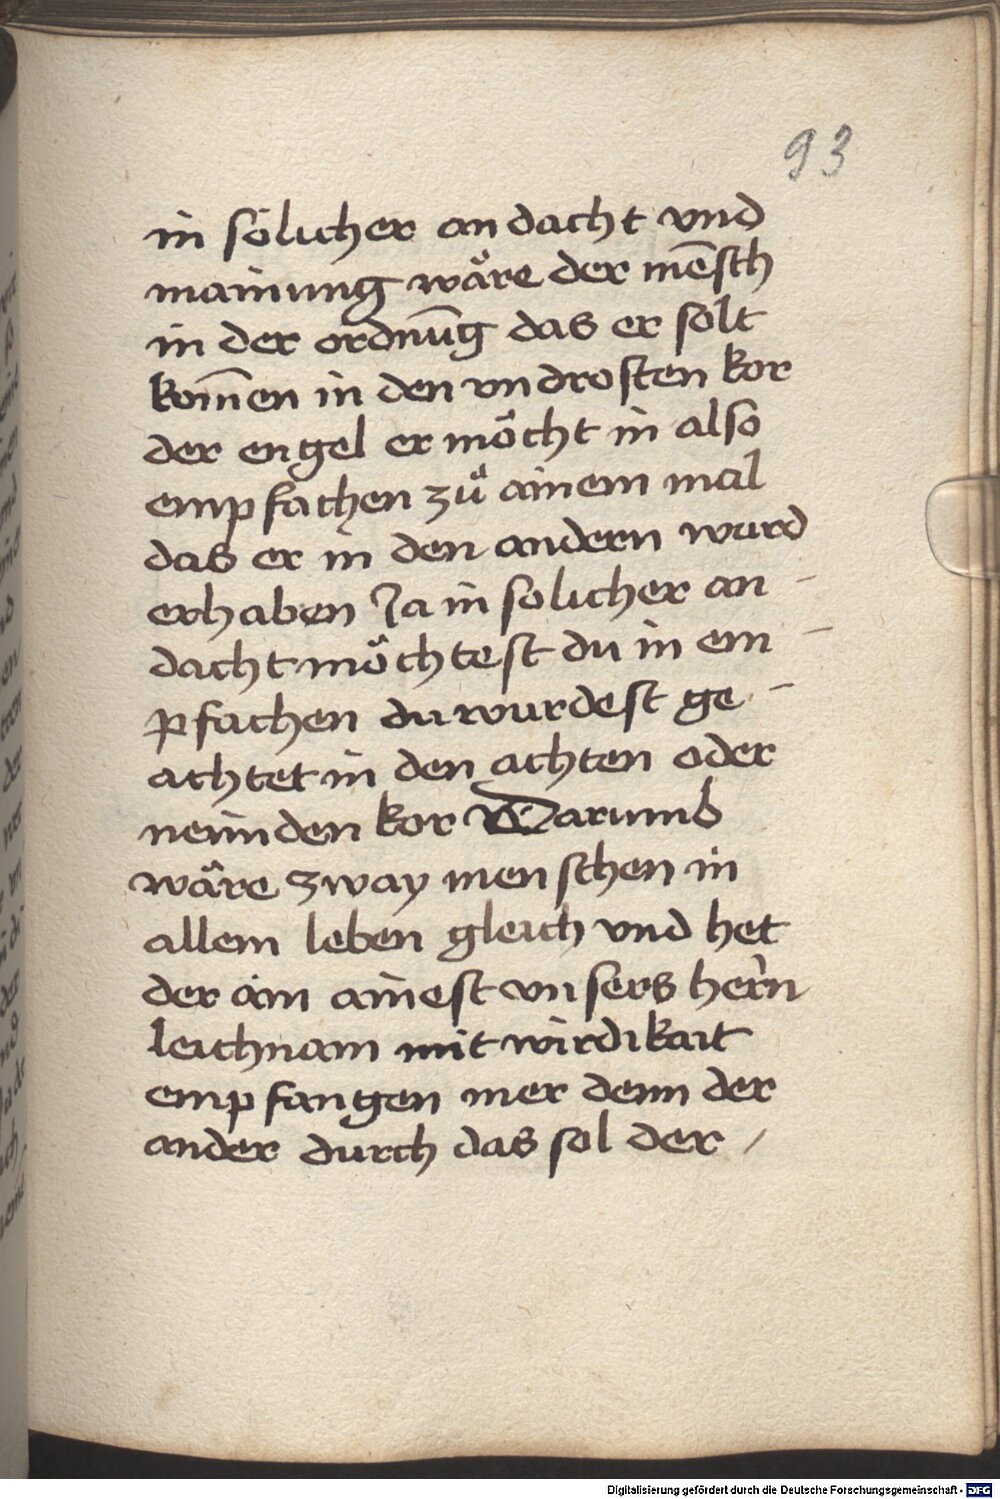 93
in sölicher an dacht vnd
mainung wäre der mēsch
in der ordnūg das er solt
kom̄en in den vndrosten kor
der engel er möcht in also
empfachen zů ainem mal
das er in den andern wurd
erhaben Ja in solicher an -
dacht möchtest du in em -
pfachen du wurdest ge -
achtet in den achten oder
neunden kor Warumb
wäre zway menschen in
allem leben gleich vnd het
der ain ainest vnsers hern
leichnam mit wirdikait
empfangen mer denn der
ander durch das sol der /
Digitalisierung gefördert durch die Deutsche Forschungsgemeinschaft - DFG